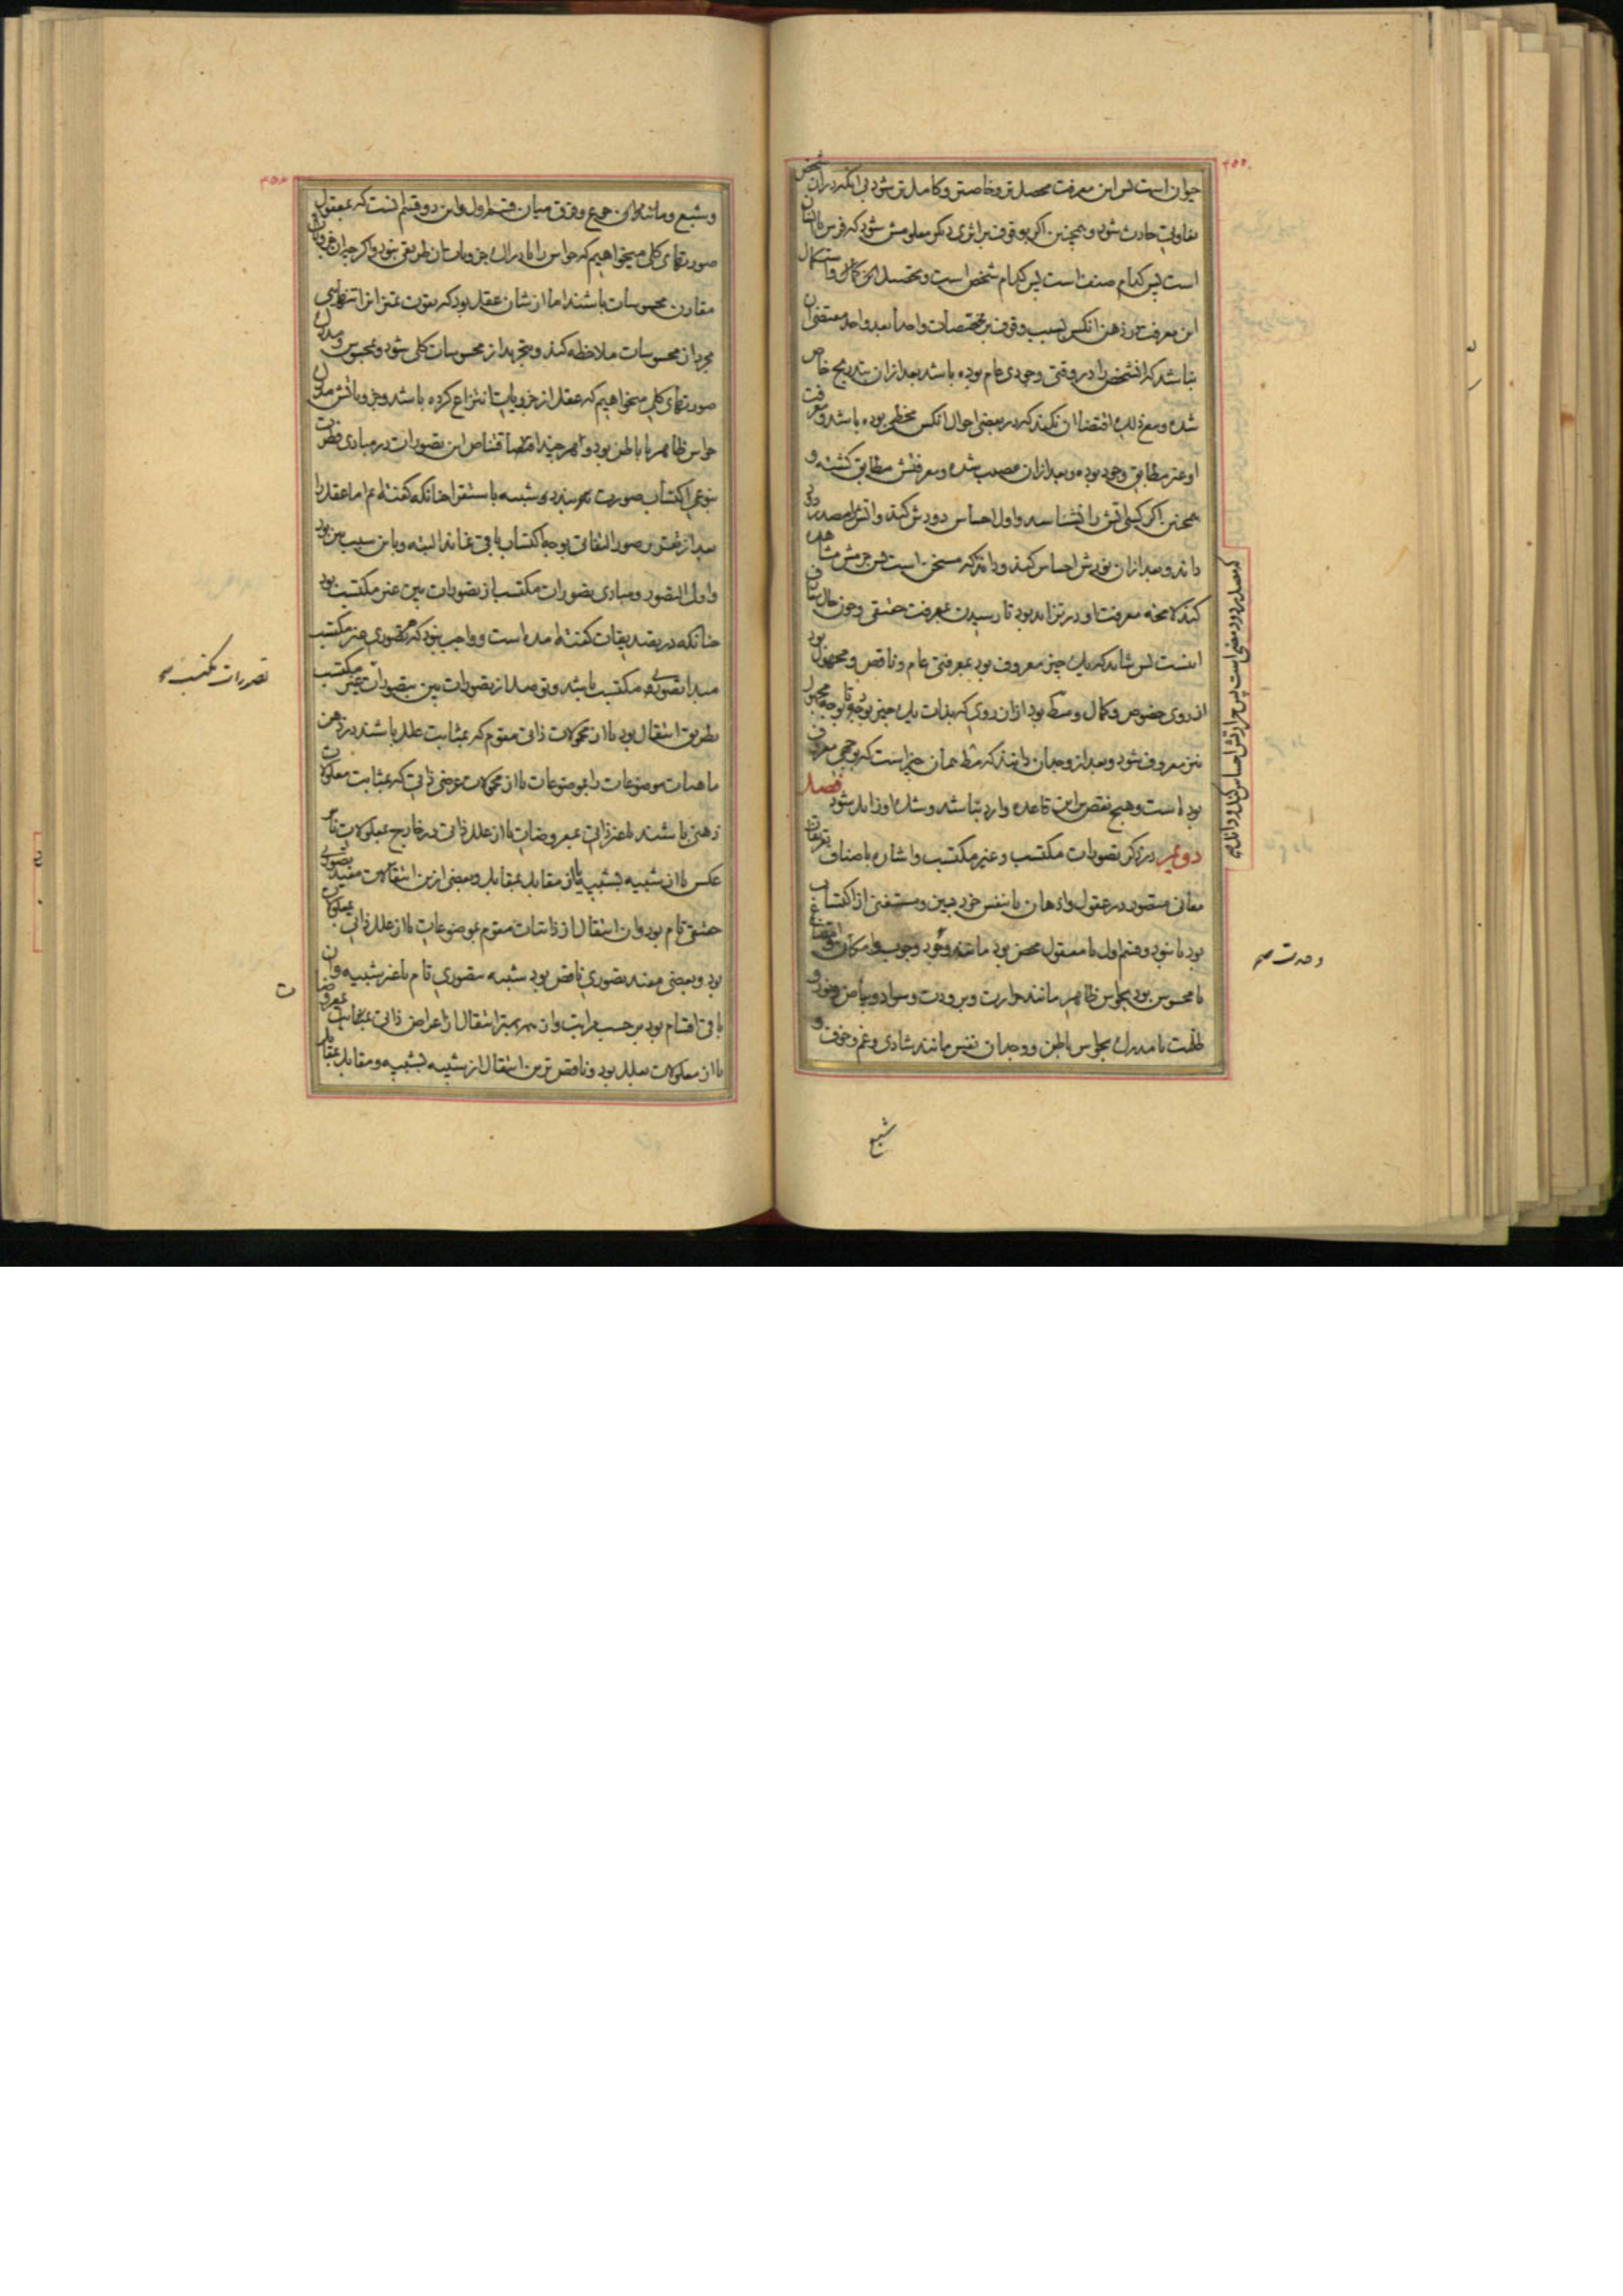 حیوان است پس این معرفت محصل‌تر و خاص‌تر و کامل‌تر شود بی آنکه در آن شخص
تفاوتی حادث شود و همچنین اگر بوقوف بر اثری دیگر معلومش شود که فرس یا انسان
است پس کدام صنف است پس کدام شخص است و تحصیل این کمال و استکمال
این معرفت در ذهن آنکس بسبب وقوف بر مختصات واحداً بعد واحد مقتضی آن
نباشد که آن شخص را در وقتی وجودی عام بوده باشد بعد از آن بتدریج خاص
شده و مع ذلک اقتضاء آن نکند که در بعضی احوال آنکس مخطی بوده باشد و معرفت
او غیر مطابق وجود بوده و بعد از آن مصیب شده و معرفتش مطابق گشته و
همچنین اگر کسی آتش را نشناسد و اول احساس دودش کند و آتش را مصدر دود
داند و بعد از آن نورش احساس کند و داند که مسخن است پس جرمش مشاهده
کند لامحاله معرفت او در تزاید بود تا رسیدن بمعرفت حقیقی و چون حال عرفان
اینست پس شاید که یک چیز معروف بود بمعرفتی عام و ناقص و مجهول بود
از روی خصوص و کمال و
نیز معروف شود و بعد از وجدان دانند که مطلوب همان چیز است که بوجهی معروف
بوده است و هیچ نقص براین قاعده وارد نباشد و شک او زایل شود فصل
دویم در ذکر تصورات مکتسب و غیر مکتسب و اشاره باصناف تعریفات
معانی متصور در عقول و اذهان یا بنفس خود مبین و مستغنی از اکتساب
بود یا نبود و قسم اول یا معقول محض بود مانند وجود و وجوب و امکان و امتناع
یا محسوس بود بحواس ظاهر مانند حرارت و برودت و سواد و بیاض و نور و
ظلمت یا مدرک بحواس باطن و وجدان نفس مانند شادی و غم و خوف و
وحدت صح
شبع
و شبع و مانند آن جوع و فرق میان قسم اول و این دو قسم آنست که بمعقول
صورتهای کلی میخواهیم که حواس را با ادراک جزویات آن طریقی نبود و اگر چه آن جزویات
مقارن محسوسات باشند اما از شان عقل بود که بقوت تمیز آن را تنها بی
مجرد از محسوسات ملاحظه کند و بتجرید از محسوسات کلی شود و بمحسوس و مدرک
صورتهای کلی میخواهیم که عقل از جزویات انتزاع کرده باشد و جزویاتش مدرک
حواس ظاهر یا باطن بود و هر چند اقتناص این تصورات در مبادی فطرت
بنوعی اکتساب صورت بندد شبیه باستقرا چنانکه گفته‌ایم اما عقل را
بعد از تمثل بر صور التفاتی بوجه اکتساب باقی نماند البته و باین سبب بین بود
و اول التصور و مبادی تصورات مکتسب از تصورات بین غیر مکتسب بود
چنانکه در تصدیقات گفته آمده است و واجب بود که هر تصوری غیر مکتسب
مبدا تصوری مکتسب باشد و توصل از تصورات بین بتصورات غیر مکتسب
بطریق انتقال بود یا از محمولات ذاتی مقوم که بمثابت علل باشند در ذهن
ماهیات موضوعات را بموضوعات یا از محمولات عرضی ذاتی که بمثابت معلولات
ذهنی باشند یا غیر ذاتی بمعروضات یا از علل ذاتی در خارج بمعلولات یا بر
عکس یا از شبیه بشبیه یا از مقابل بمقابل و بعضی از این انتقالات مفید تصوری
حقیقی تام بود و آن انتقال از ذاتیات مقوم بموضوعات یا از علل ذاتی بمعلول
بود و بعضی مفید تصوری ناقص بود شبیه بتصوری تام یا غیر شبیه و آن
باقی اقسام بود بر حسب مراتب و آن بهترین انتقال از اعراض ذاتی بمعروضات
یا از معلولات بعلل بود و ناقص‌ترین انتقال از شبیه بشبیه و مقابل بمقابل
تصورات مکتسب صح